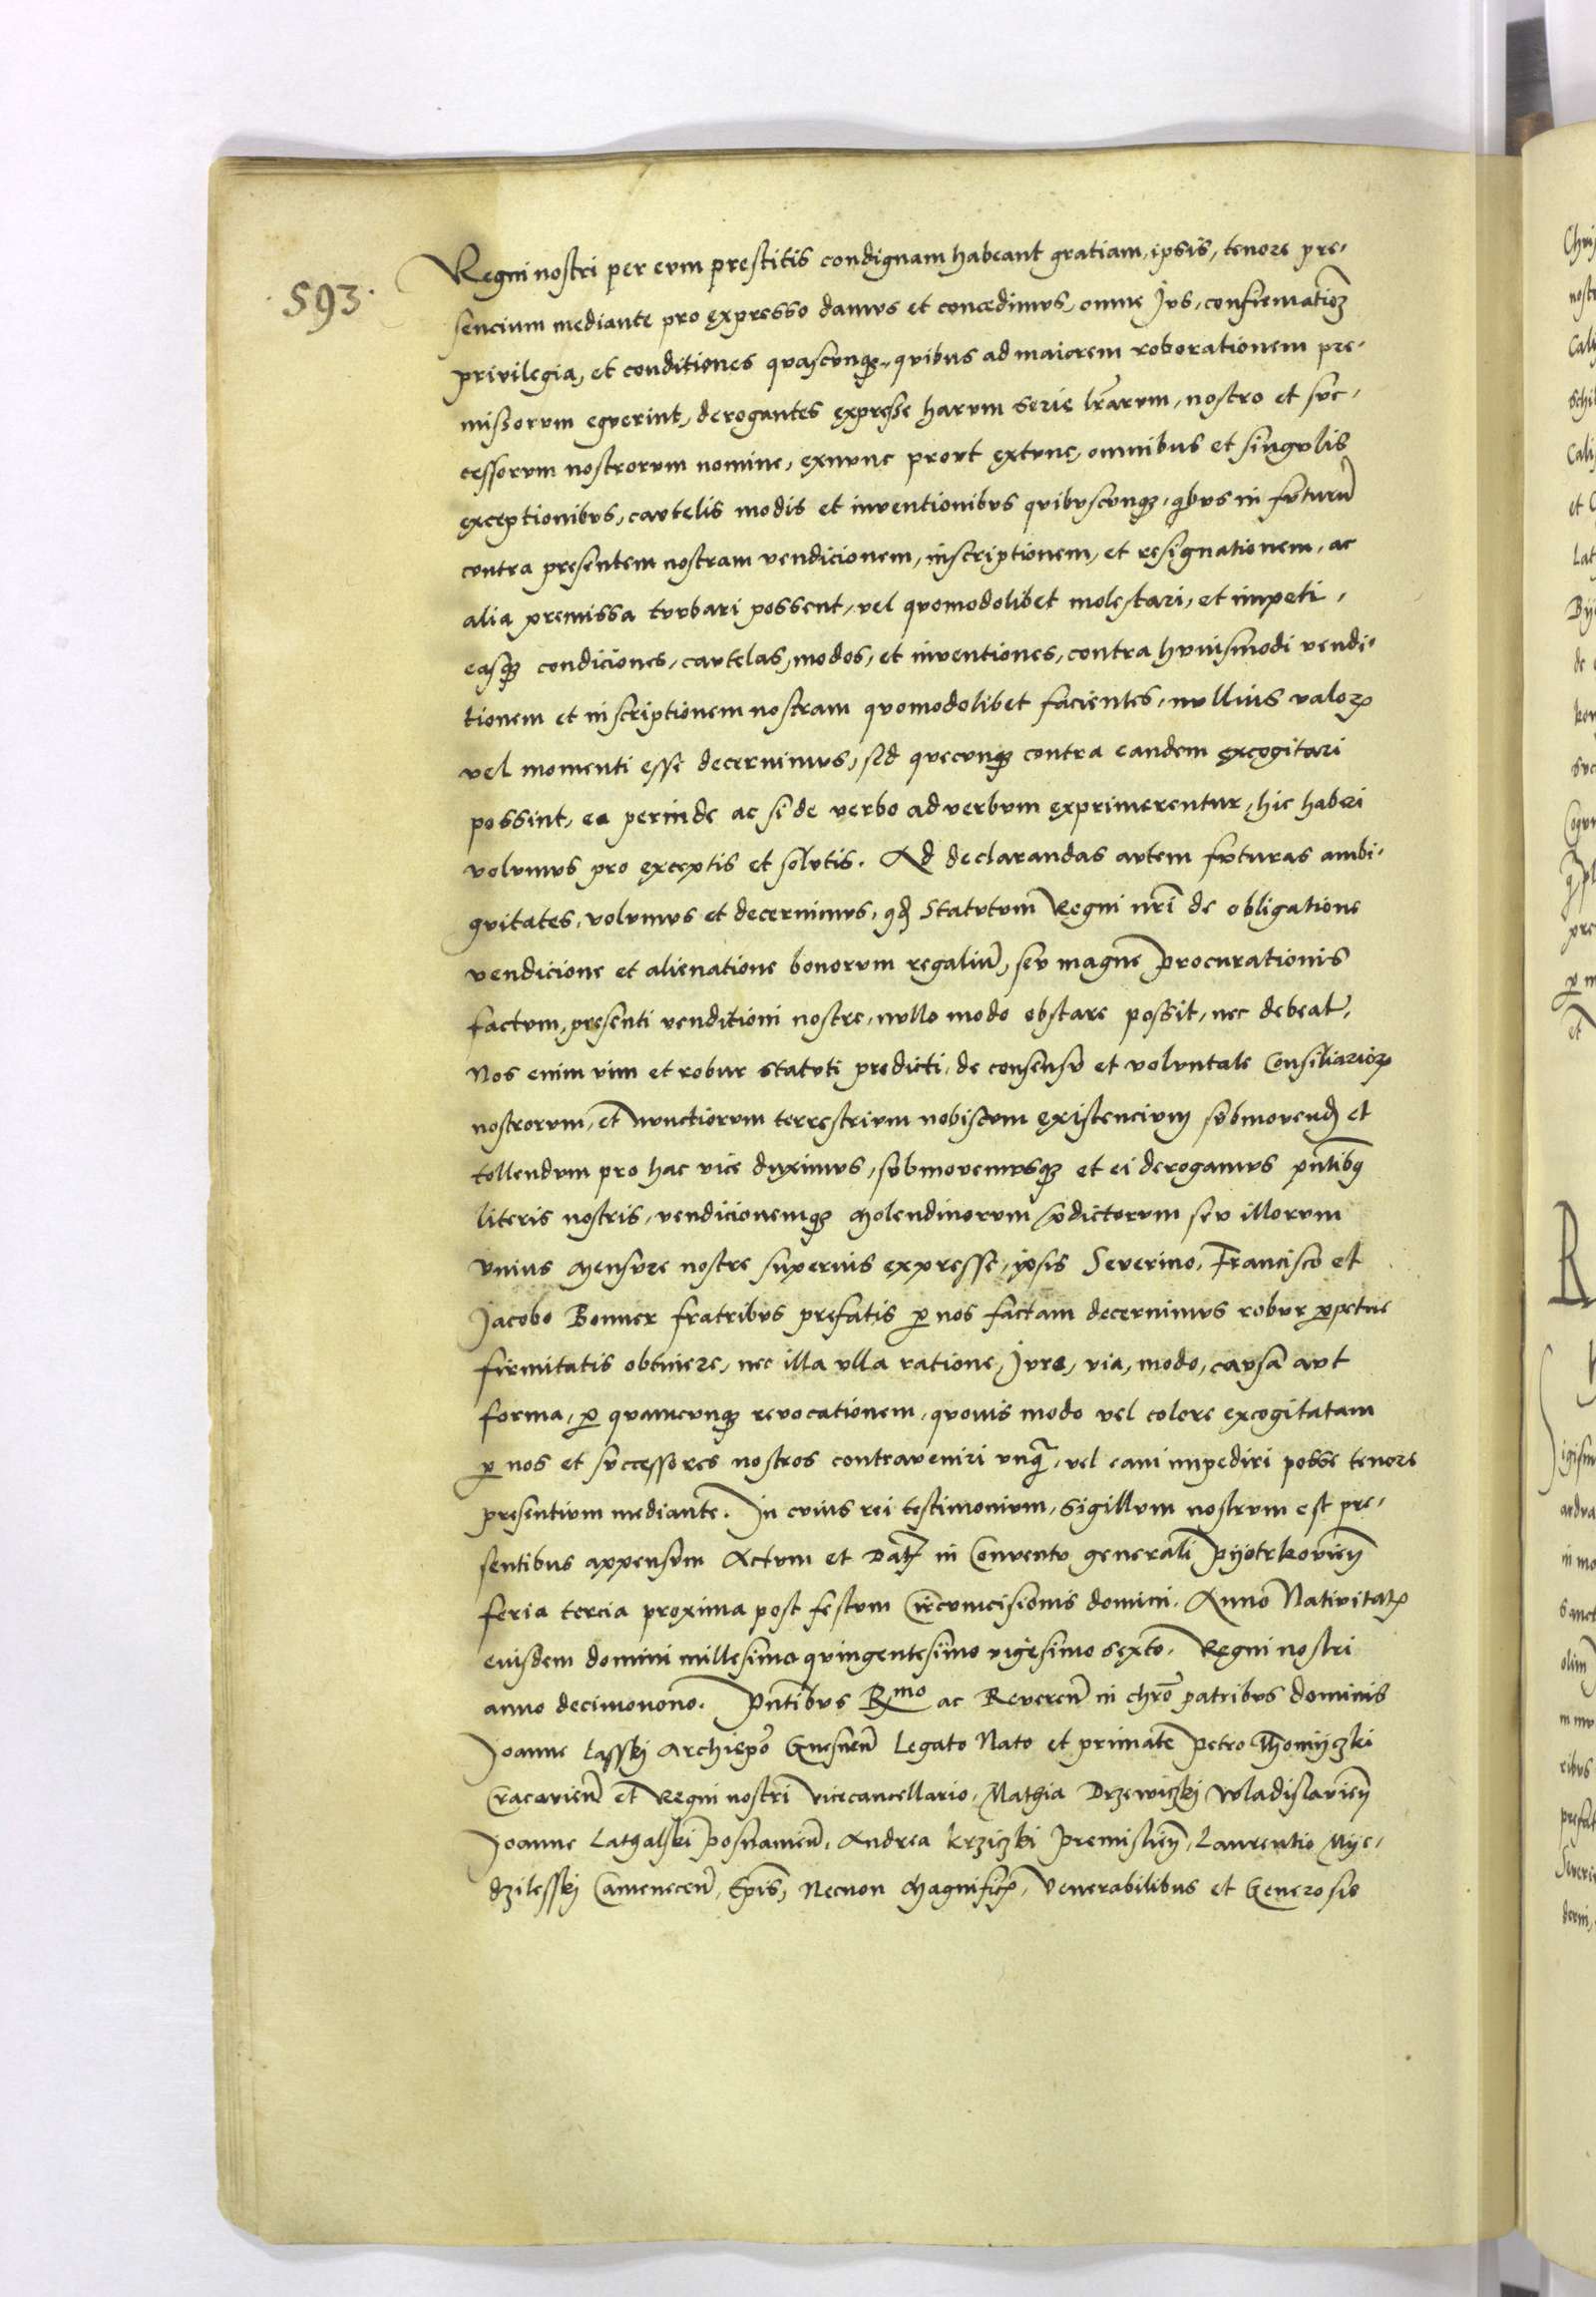 ·593·
Regni nostri per eum prestitis condignam habeant gratiam, ipsis, tenore pre-
sencium mediante pro expresso damus et concedimus, omne Jus, confirmatioẽ
privilegia, et conditiones quascunqꝫ, quibus ad maiorem roborationem pre-
missorum eguerint, derogantes expresse harum serie lr̃arum, nostro et suc-
cessorum nostrorum nomine, exnunc prout extunc, omnibus et singulis
exceptionibus, cautelis modis et inventionibus quibuscunqꝫ, qbus in futurũ
contra presentem nostram vendicionem, inscriptionem, et resignationem, ac
alia premissa turbari possent, vel quomodolibet molestari, et impeti,
easqꝫ condiciones, cautelas, modos, et inventiones, contra huiusmodi vendi-
tionem et inscriptionem nostram quomodolibet facientes, nullius valoꝝ
vel momenti esse decernimus, sed quecunqꝫ contra eandem excogitari
possint, ea perinde ac si de verbo ad verbum exprimerentur, hic haberi
volumus pro exceptis et solutis. Ad declarandas autem futuras ambi-
guitates, volumus et decernimus, qđ Statutum Regni nr̃i de obligatione
vendicione et alienatione bonorum regaliũ, seu magne procurationis
factum, presenti venditioni nostre, nullo modo obstare possit, nec debeat,
Nos enim vim et robur statuti predicti, de consensu et voluntate Consiliarioꝝ
nostrorum, et Nunctiorum terrestrium nobiscum existencium submovend et
tollendum pro hac vice duximus, submovemusqꝫ et ei derogamus pñtibꝫ
literis nostris, vendicionemqꝫ Molendinorum p̃dictorum seu illorum
Unius Mensure nostre superius expresse, ipsis Severino, Francisco et
Jacobo Bonner fratribus prefatis ꝑ nos factam decernimus robur ꝑpetue
firmitatis obtinere, nec illa ulla ratione, Jure, via, modo, causa aut
forma, ꝑ quamcunqꝫ revocationem, quovis modo vel colore excogitatam
ꝑ nos et successores nostros contraveniri unq̃, vel eam impediri posse tenore
presentium mediante. In cuius rei testimonium, sigillum nostrum est pre-
sentibus appensum Actum et Dat in Conventu generali Pyotrkovieñ
feria tercia proxima post festum Circumcisionis domini. Anno Nativitatꝭ
eiusdem domini millesimo quingentesimo vigesimo sexto. Regni nostri
anno decimonono. Pñtibus Rmo ac Reveren̄ in chrõ patribus dominis
Joanne Lasski Archiepõ Gnesnen̄ Legato Nato et primate Petro Thomiyczki
Cracovien̄ et Regni nostri vicecancellario, Mathia Drzewiczki Wladislavieñ
Joanne Lathalski Posnanien̄, Andrea Krziczki Premislieñ, Laurentio Mye-
dzilesskj Camenecen̄, Epis, Necnon Magnificꝭ, Venerabilibus et Generosis